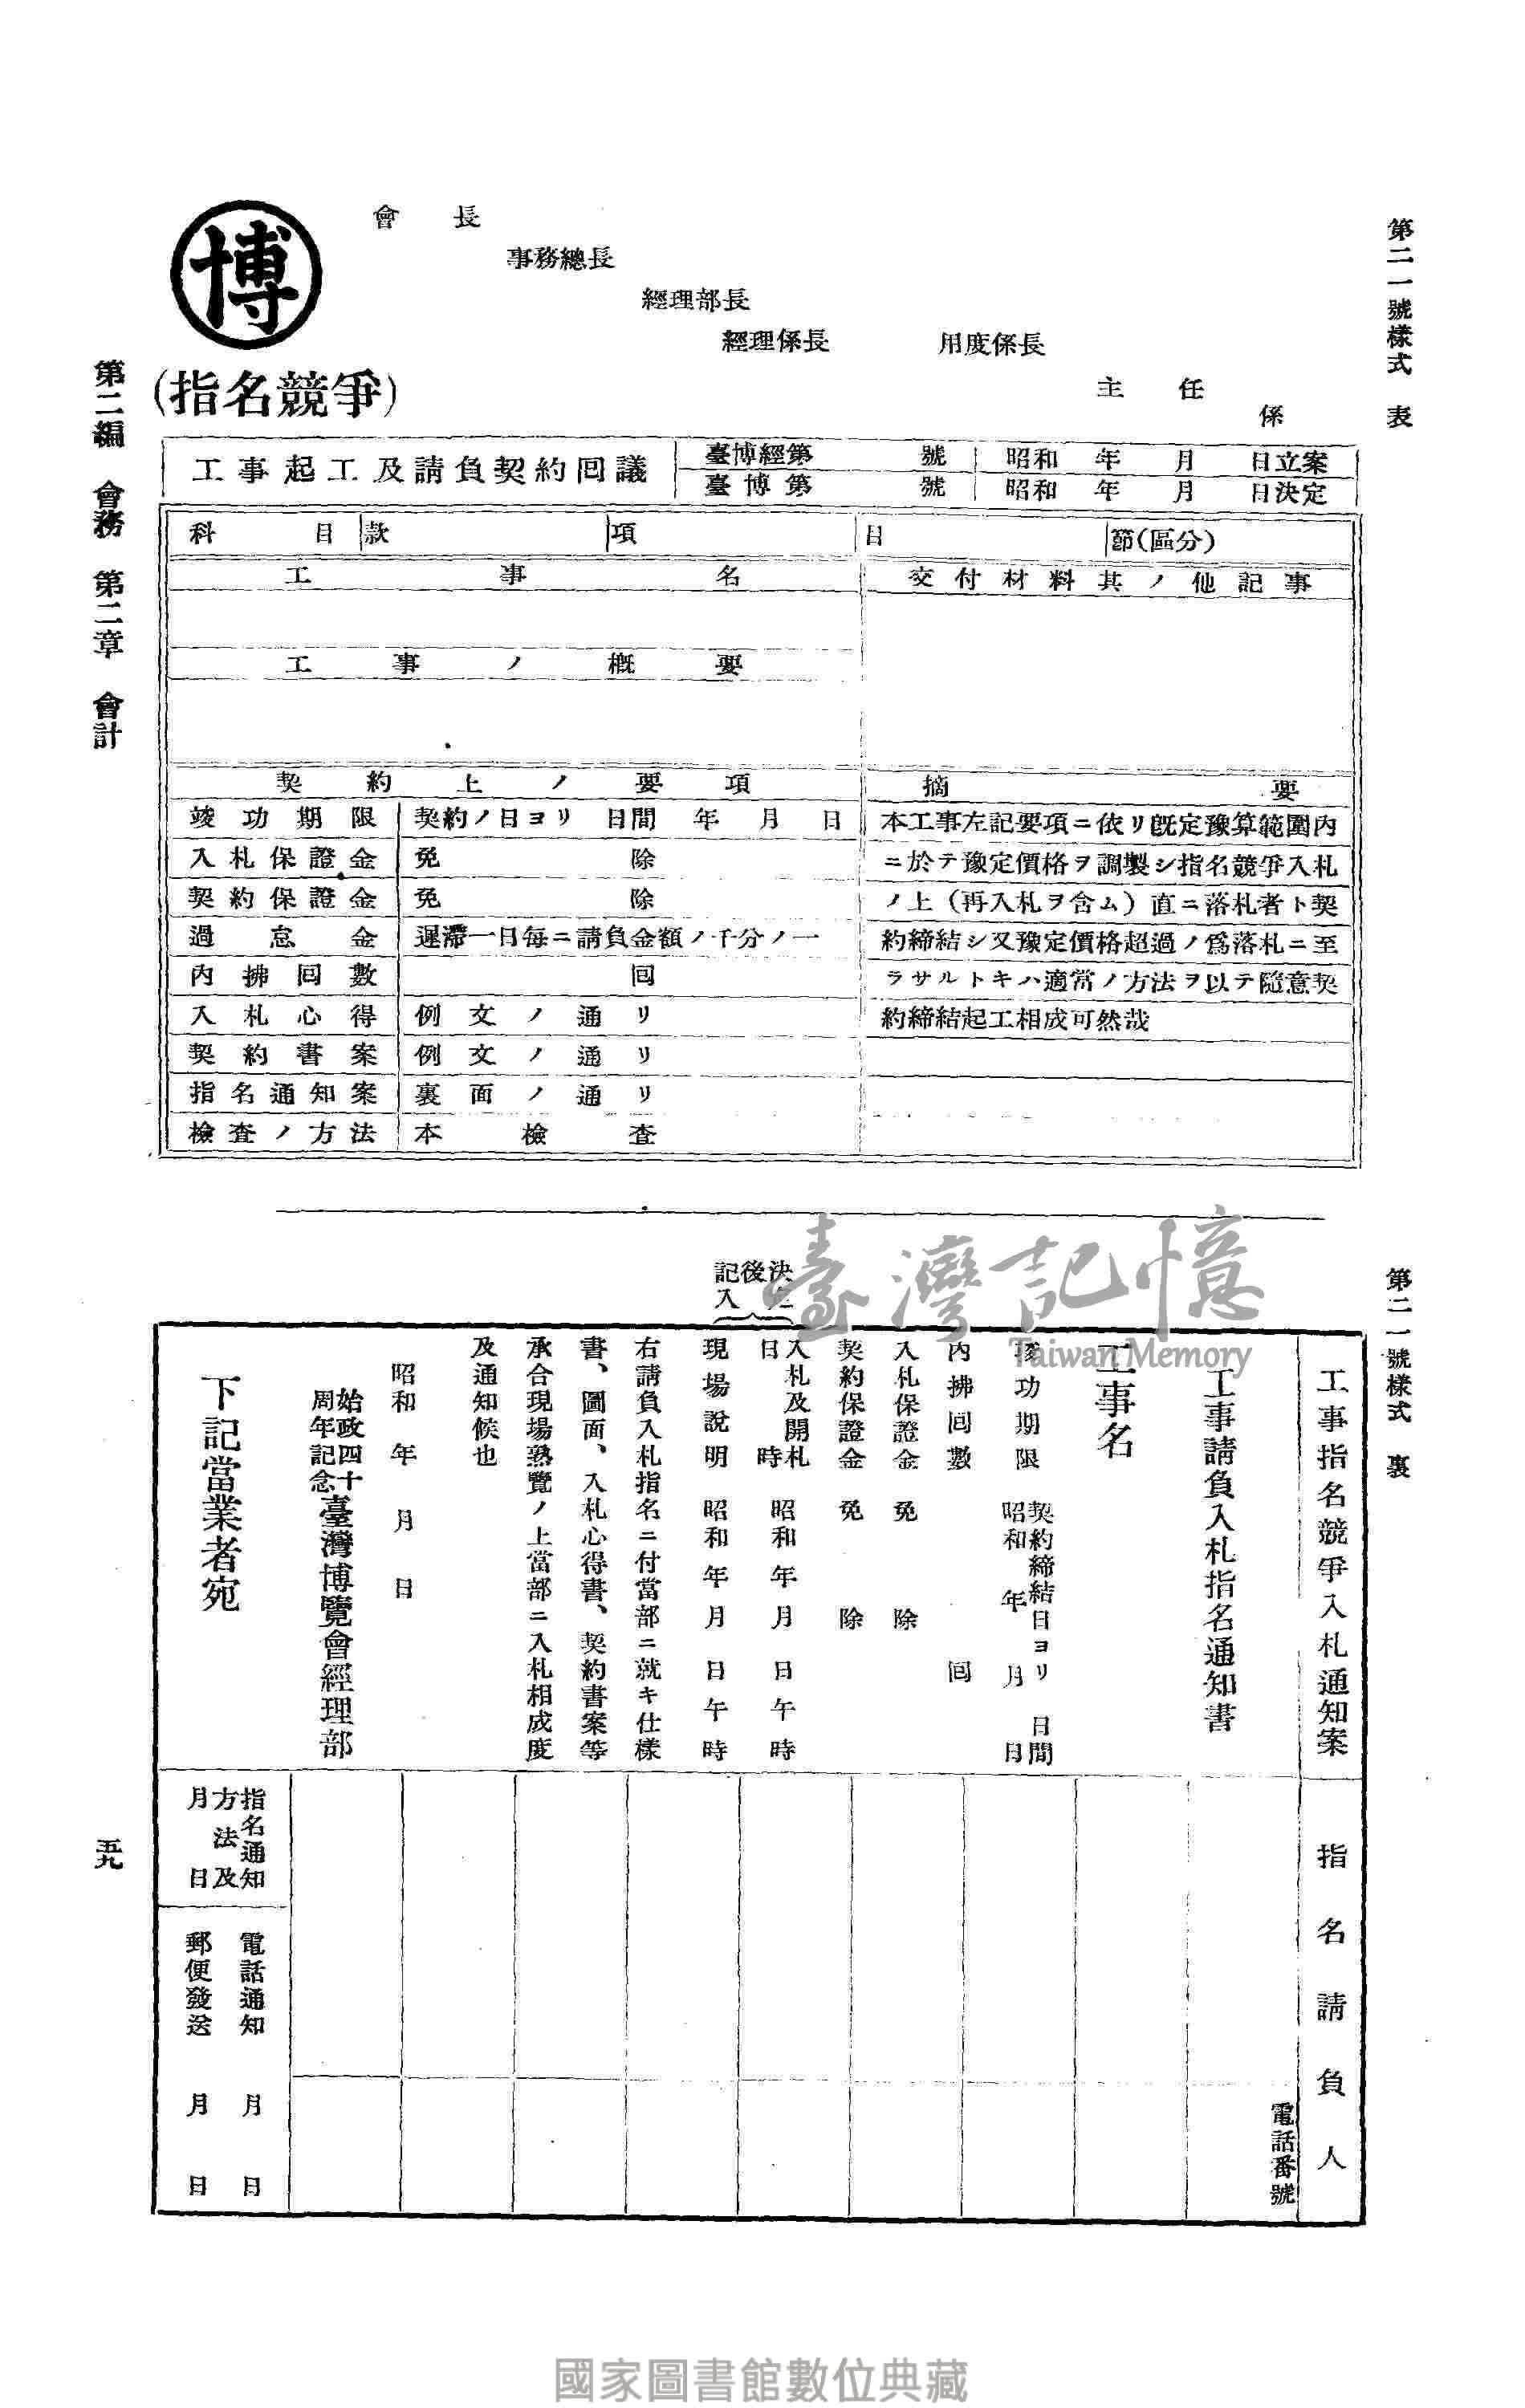 第二一號樣式　表
博
會長
事務總長
經理部長
經理係長　用度係長
主任
係
(指名競爭)
工事起工及請負契約囘議
臺博經第　號　昭和　年　月　日立案
臺博第　號　昭和　年　月　日決定
科目　款　項　目　節(區分)
工事名
交付材料其ノ他記事
工事ノ概要
契約上ノ要項
竣功期限　契約ノ日ヨリ　日間　年　月　日
入札保證金　免除
契約保證金　免除
過怠金　遲滯一日每ニ請負金額ノ千分ノ一
內拂囘數　囘
入札心得　例文ノ通リ
契約書案　例文ノ通リ
指名通知案　裏面ノ通リ
檢查ノ方法　本檢查
摘要
本工事左記要項ニ依リ既定豫算範圍內
ニ於テ豫定價格ヲ調製シ指名競爭入札
ノ上（再入札ヲ含ム）直ニ落札者ト契
約締結シ又豫定價格超過ノ爲落札ニ至
ラサルトキハ適當ノ方法ヲ以テ隨意契
約締結起工相成可然哉
第二一號樣式　裏
工事指名競爭入札通知案
工事請負入札指名通知書
工事名
功期限　契約締結日ヨリ　日間
昭和　年　月　日
內拂囘數　囘
入札保證金　免除
契約保證金　免除
決
後記入
入札及開札
日時　昭和　年　月　日午　時
現場說明　昭和　年　月　日午　時
右請負入札指名ニ付當部ニ就キ仕樣
書、圖面、入札心得書、契約書案等
承合現場熟覽ノ上當部ニ入札相成度
及通知候也
昭和　年　月　日
始政四十
周年記念
臺灣博覽會經理部
下記當業者宛
指名請負人
電話番號
指名通知
方法及
月日
電話通知　月　日
郵便發送　月　日
第二編　會務　第二章　會計
五九
臺灣記憶
Taiwan Memory
國家圖書館數位典藏